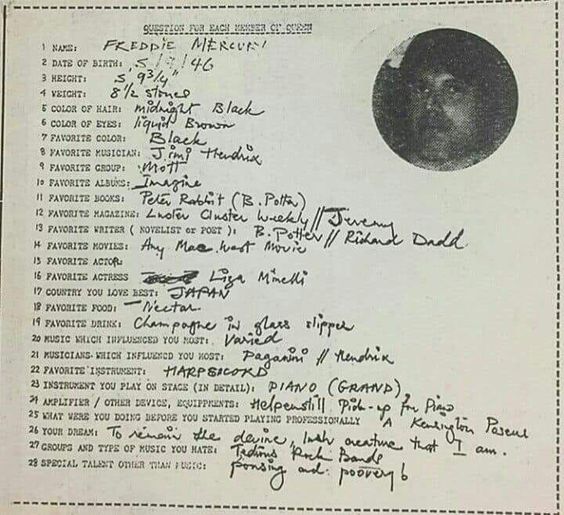 QUESTION FOR EACH MEMBER OF QUEEN
1 NAME: FREDDIE MERCURY
2 DATE OF BIRTH: 5/9/46
3 HEIGHT: 5' 9 3/4"
4 WEIGHT: 8 1/2 stones
5 COLOR OF HAIR: midnight Black
6 COLOR OF EYES: liquid Brown
7 FAVORITE COLOR: Black
8 FAVORITE MUSICIAN: Jimi Hendrix
9 FAVORITE GROUP: Mott
10 FAVORITE ALBUMS: Imagine
11 FAVORITE BOOKS: Peter Rabbit (B. Potter)
12 FAVORITE MAGAZINE: Luster Cluster Weekly // Jeremy
13 FAVORITE WRITER ( NOVELIST OR POET ): B. Potter // Richard Dadd
14 FAVORITE MOVIES: Any Mae West Movie
15 FAVORITE ACTOR:
16 FAVORITE ACTRESS Liza Minelli
17 COUNTRY YOU LOVE BEST: JAPAN
18 FAVORITE FOOD: Nectar
19 FAVORITE DRINK: Champagne in glass slipper
20 MUSIC WHICH INFLUENCED YOU MOST: Varied
21 MUSICIANS WHICH INFLUENCD YOU MOST: Paganini // Hendrix
22 FAVORITE INSTRUMENT: HARPSICORD
23 INSTRUMENT YOU PLAY ON STAGE (IN DETAIL): PIANO (GRAND)
24 AMPLIFIER / OTHER DEVICE, EQUIPPMENTS: Helpenstill Pick-up for Piano
25 WHAT WERE YOU DOING BEFORE YOU STARTED PLAYING PROFESSIONALLY A Kensington Poseur
26 YOUR DREAM: To remain the devine, lush creature that I am.
27 GROUPS AND TYPE OF MUSIC YOU HATE: Tedious Rock Bands
28 SPECIAL TALENT OTHER THAN MUSIC: ponsing and poovery